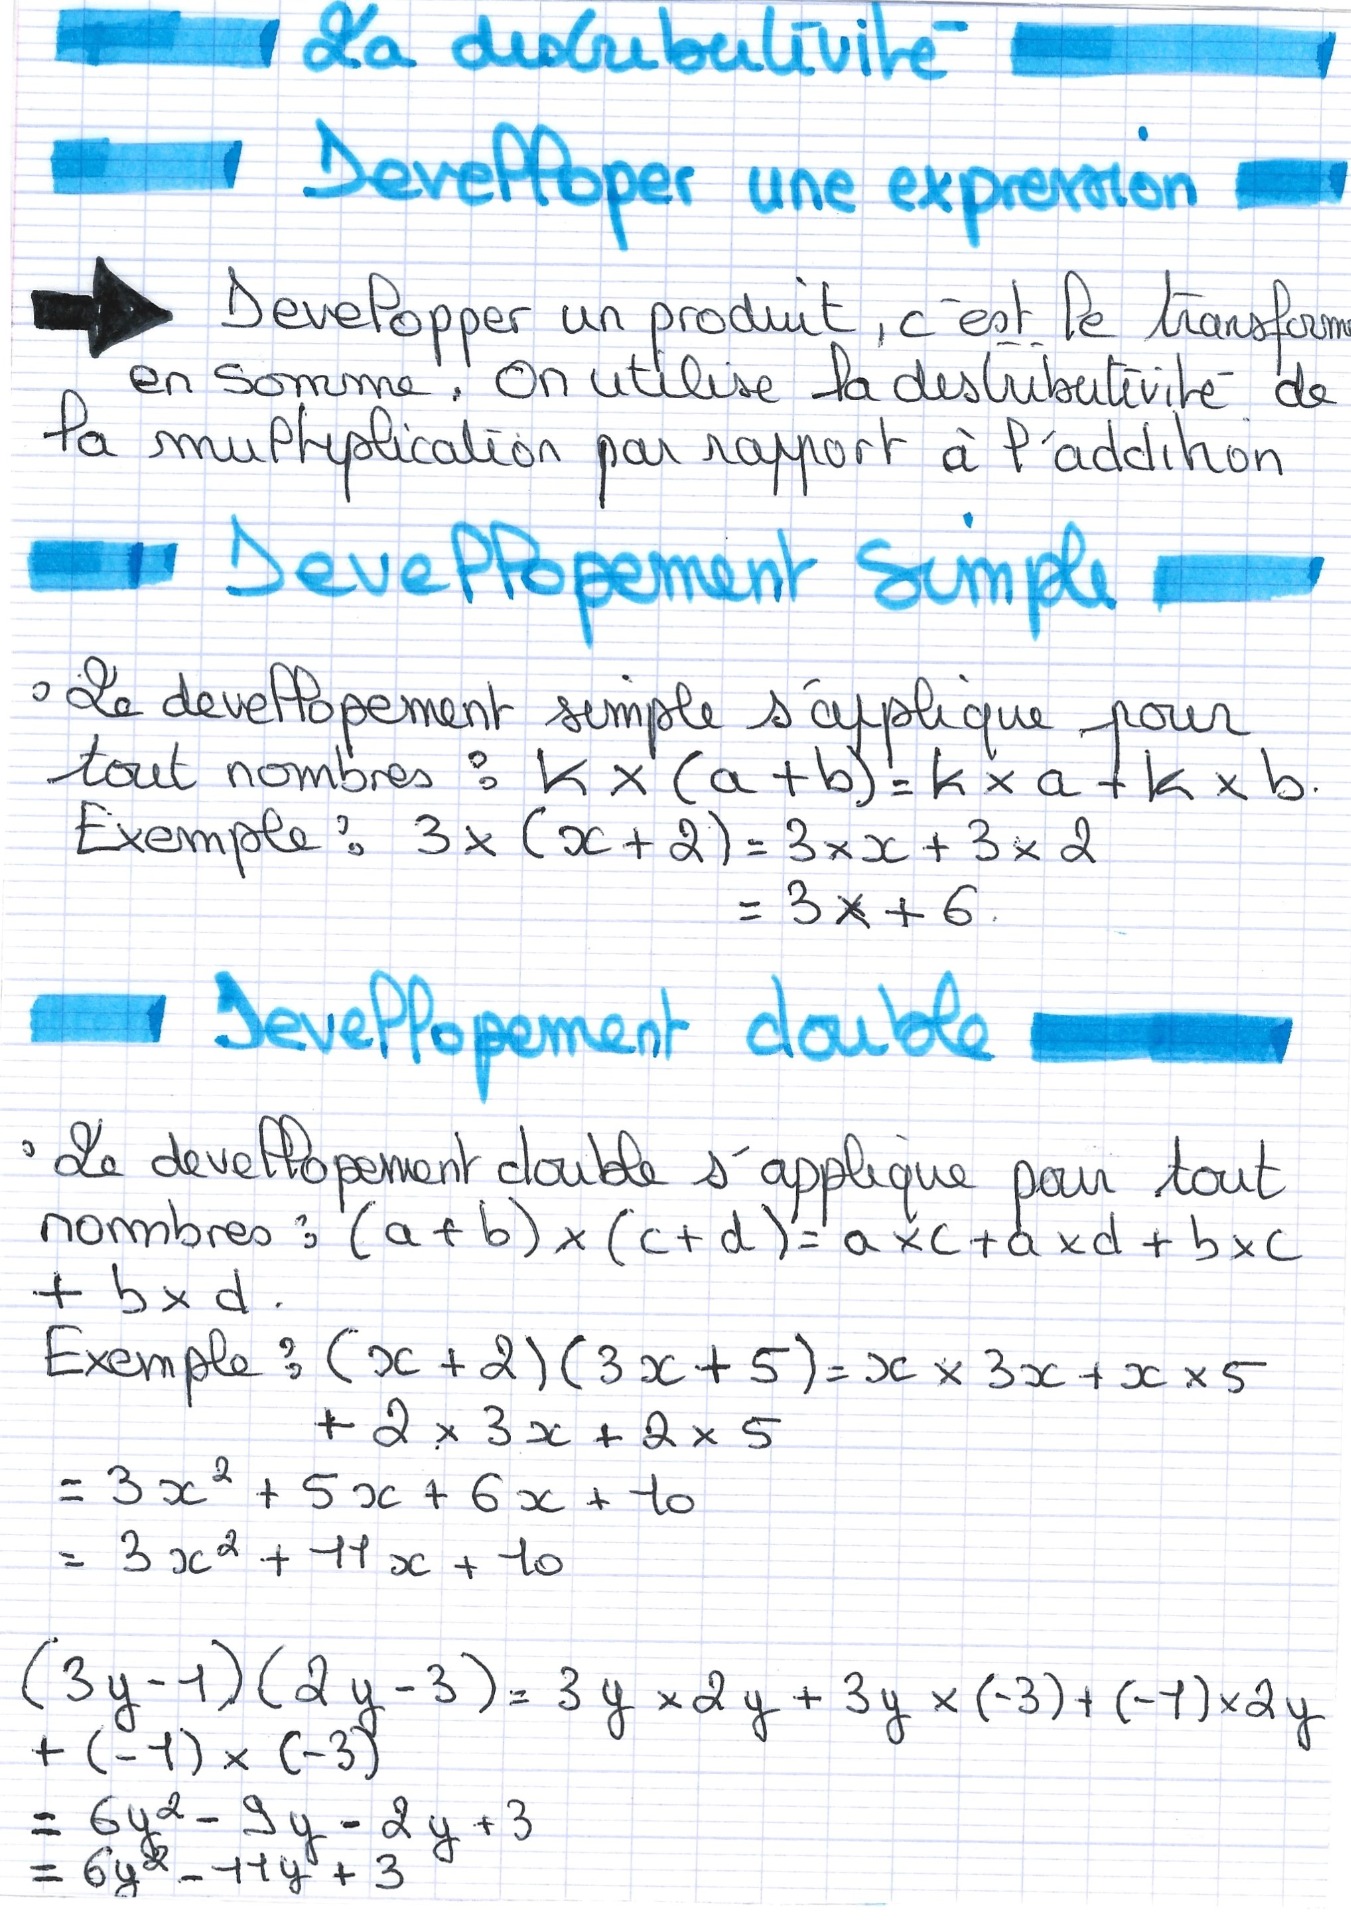 La distributivité
Develloper une expression
Developper un produit, c'est le transforme
en somme. On utilise la distributivité de
la multiplication par rapport à l'addition
Devellopement simple
Le devellopement simple s'applique pour
tout nombres : k × (a + b) = k × a + k × b.
Exemple : 3 × (x + 2) = 3 × x + 3 × 2
= 3x + 6.
Devellopement double
Le devellopement double s'applique pour tout
nombres : (a + b) × (c + d) = a × c + a × d + b × c
+ b × d.
Exemple : (x + 2)(3x + 5) = x × 3x + x × 5
+ 2 × 3x + 2 × 5
= 3x² + 5x + 6x + 10
= 3x² + 11x + 10
(3y - 1)(2y - 3) = 3y × 2y + 3y × (-3) + (-1) × 2y
+ (-1) × (-3)
= 6y² - 9y - 2y + 3
= 6y² - 11y + 3